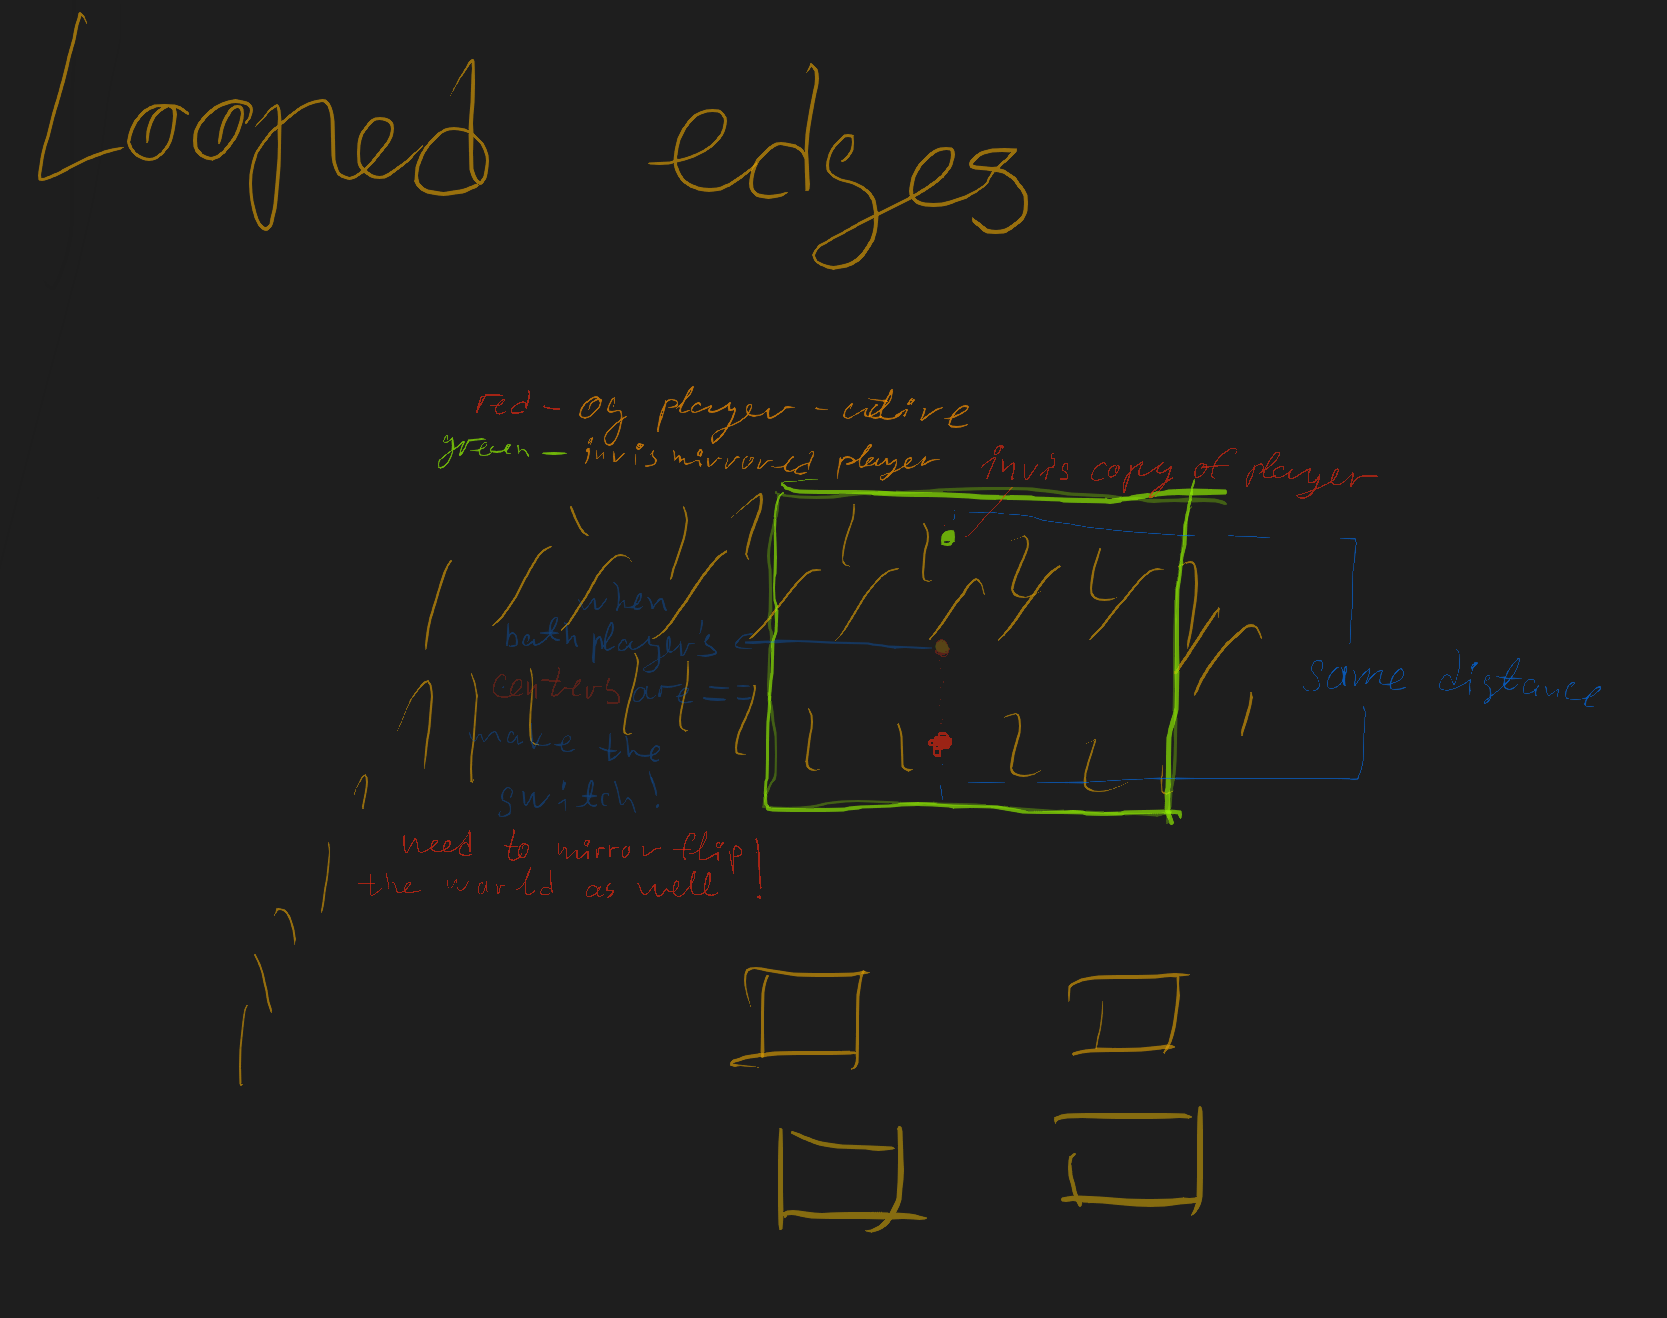 Looped edges
red - og player - active
green - invis mirrored player
invis copy of player
when
both player's
centers are ==
make the
switch!
same distance
need to mirror flip
the world as well!